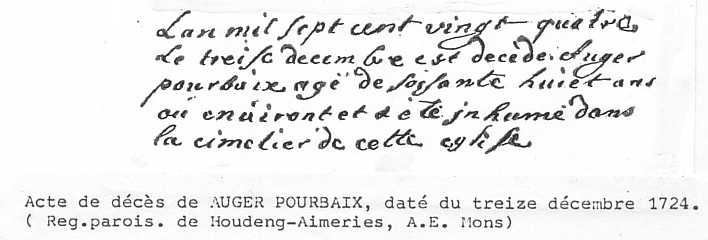 Lan mil sept cent vingt quatre
Le treise decembre est decede Auger
pourbaix agé de soissante huict ans
ou enuiront et a eté jnhumé dans
la cimetier de cette eglise
Acte de décès de AUGER POURBAIX, daté du treize décembre 1724.
( Reg.parois. de Houdeng-Aimeries, A.E. Mons)